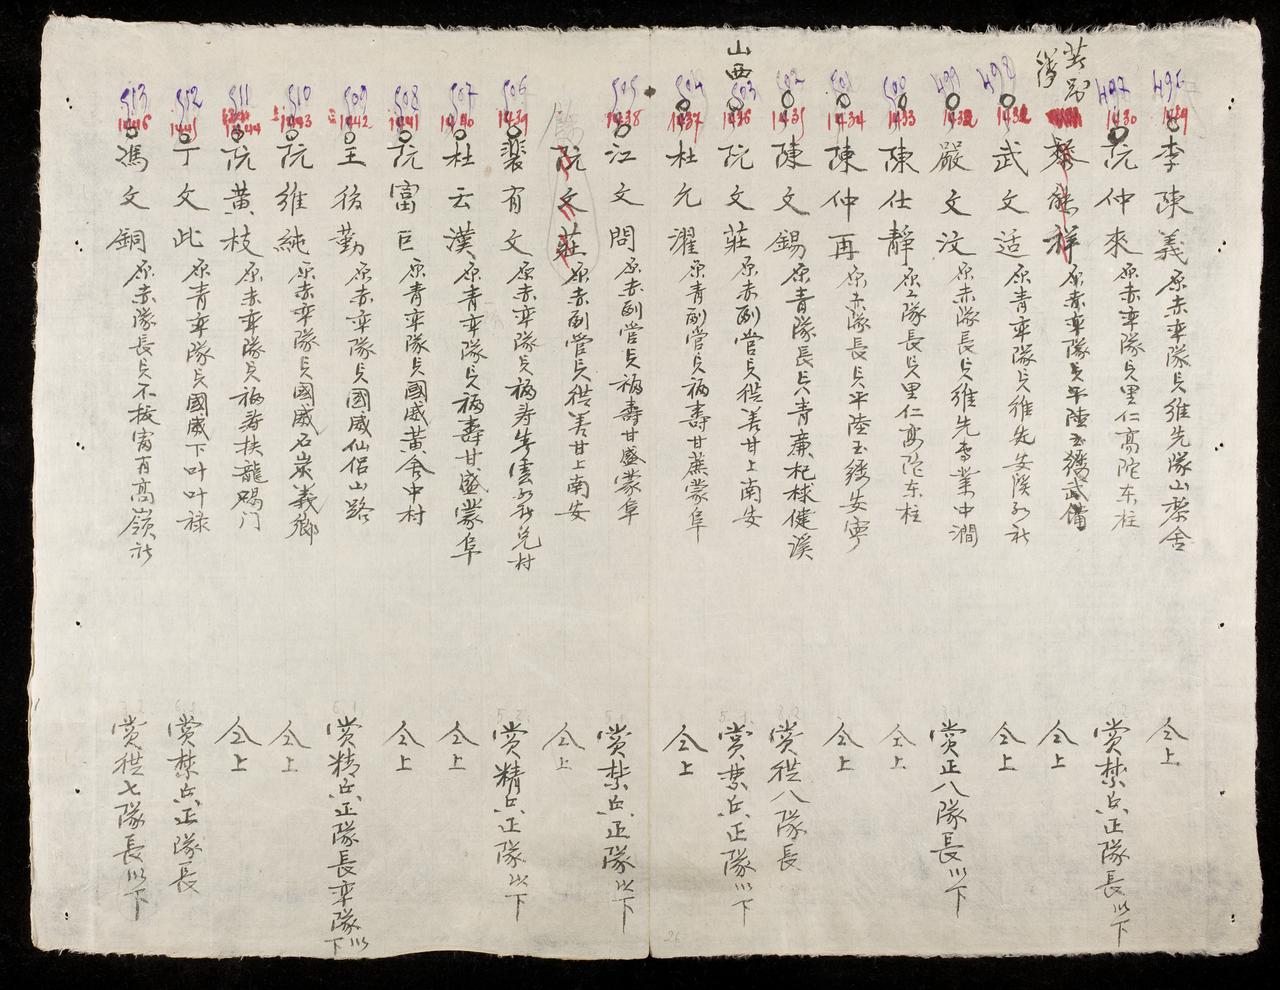 496
1429
李陳義原赤率隊兵維先隊山黎舍
仝上
497
1430
阮仲來原赤率隊兵里仁高陀東柱
賞禁兵正隊長以下
黎能祥原赤率隊兵平陸玉綉武備
仝上
498
武文适原青率隊兵維先安溪
仝上
499
嚴文汶原赤隊長兵維先李業中澗
賞正八隊長以下
500
1433
陳仕靜原隊長兵里仁高陀东柱
仝上
501
1434
陳仲再原赤隊長兵平陸玉綉安寧
仝上
502
1435
陳文錫原青隊長兵青廉杞梂健溪
賞從八隊長
山西
503
1436
阮文莊原赤副管兵從善甘上南安
賞禁兵正隊以下
504
1437
杜允濯原青副管兵福壽甘蔗蒙阜
仝上
505
1438
江文問原赤副管兵福壽甘盛蒙阜
賞禁兵正隊以下
阮文莊原赤副管兵從善甘上南安
仝上
506
1439
裴有文原赤率隊兵福寿雲兑村
賞精兵正隊以下
507
1440
杜云漢原青率隊兵福壽甘盛蒙阜
仝上
508
1441
阮富巨原青率隊兵國威黃舍中村
仝上
509
1442
王後勤原赤率隊兵國威仙侣山路
賞精兵正隊長率隊以下
510
1443
阮維純原赤率隊兵國威石炭義鄉
仝上
511
1444
阮黃枝原赤率隊兵福寿扶龍賜门
仝上
512
1445
丁文此原青率隊兵國威下叶叶禄
賞禁兵正隊長
513
1446
馮文銅原赤隊長兵不拔高嶺社
賞從七隊長以下
26